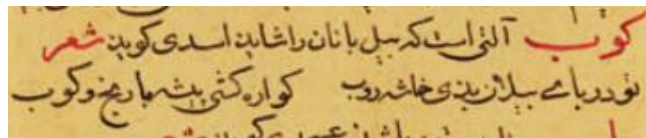 کوب آلتی است که پیل بانان را شاید اسدی کوید شعر
تو در پای پیلان بدی خاشه روب کواره کشی پیشه با رنج و کوب